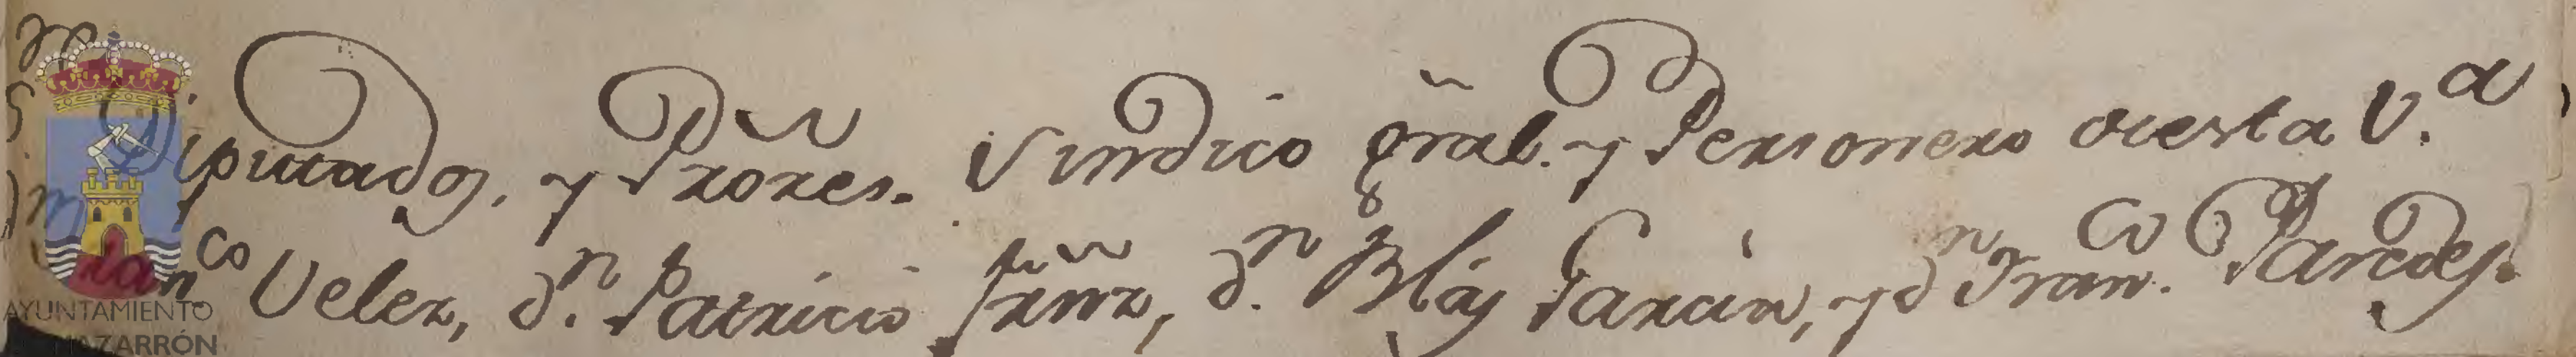 Diputados, y Prores. Sindico gral. y Personero de esta V.a
Fran.co Velez, d.n Patricio frnz, d.n Blas Garcia, y d.n Fran.co Paredes.
AYUNTAMIENTO
MAZARRÓN